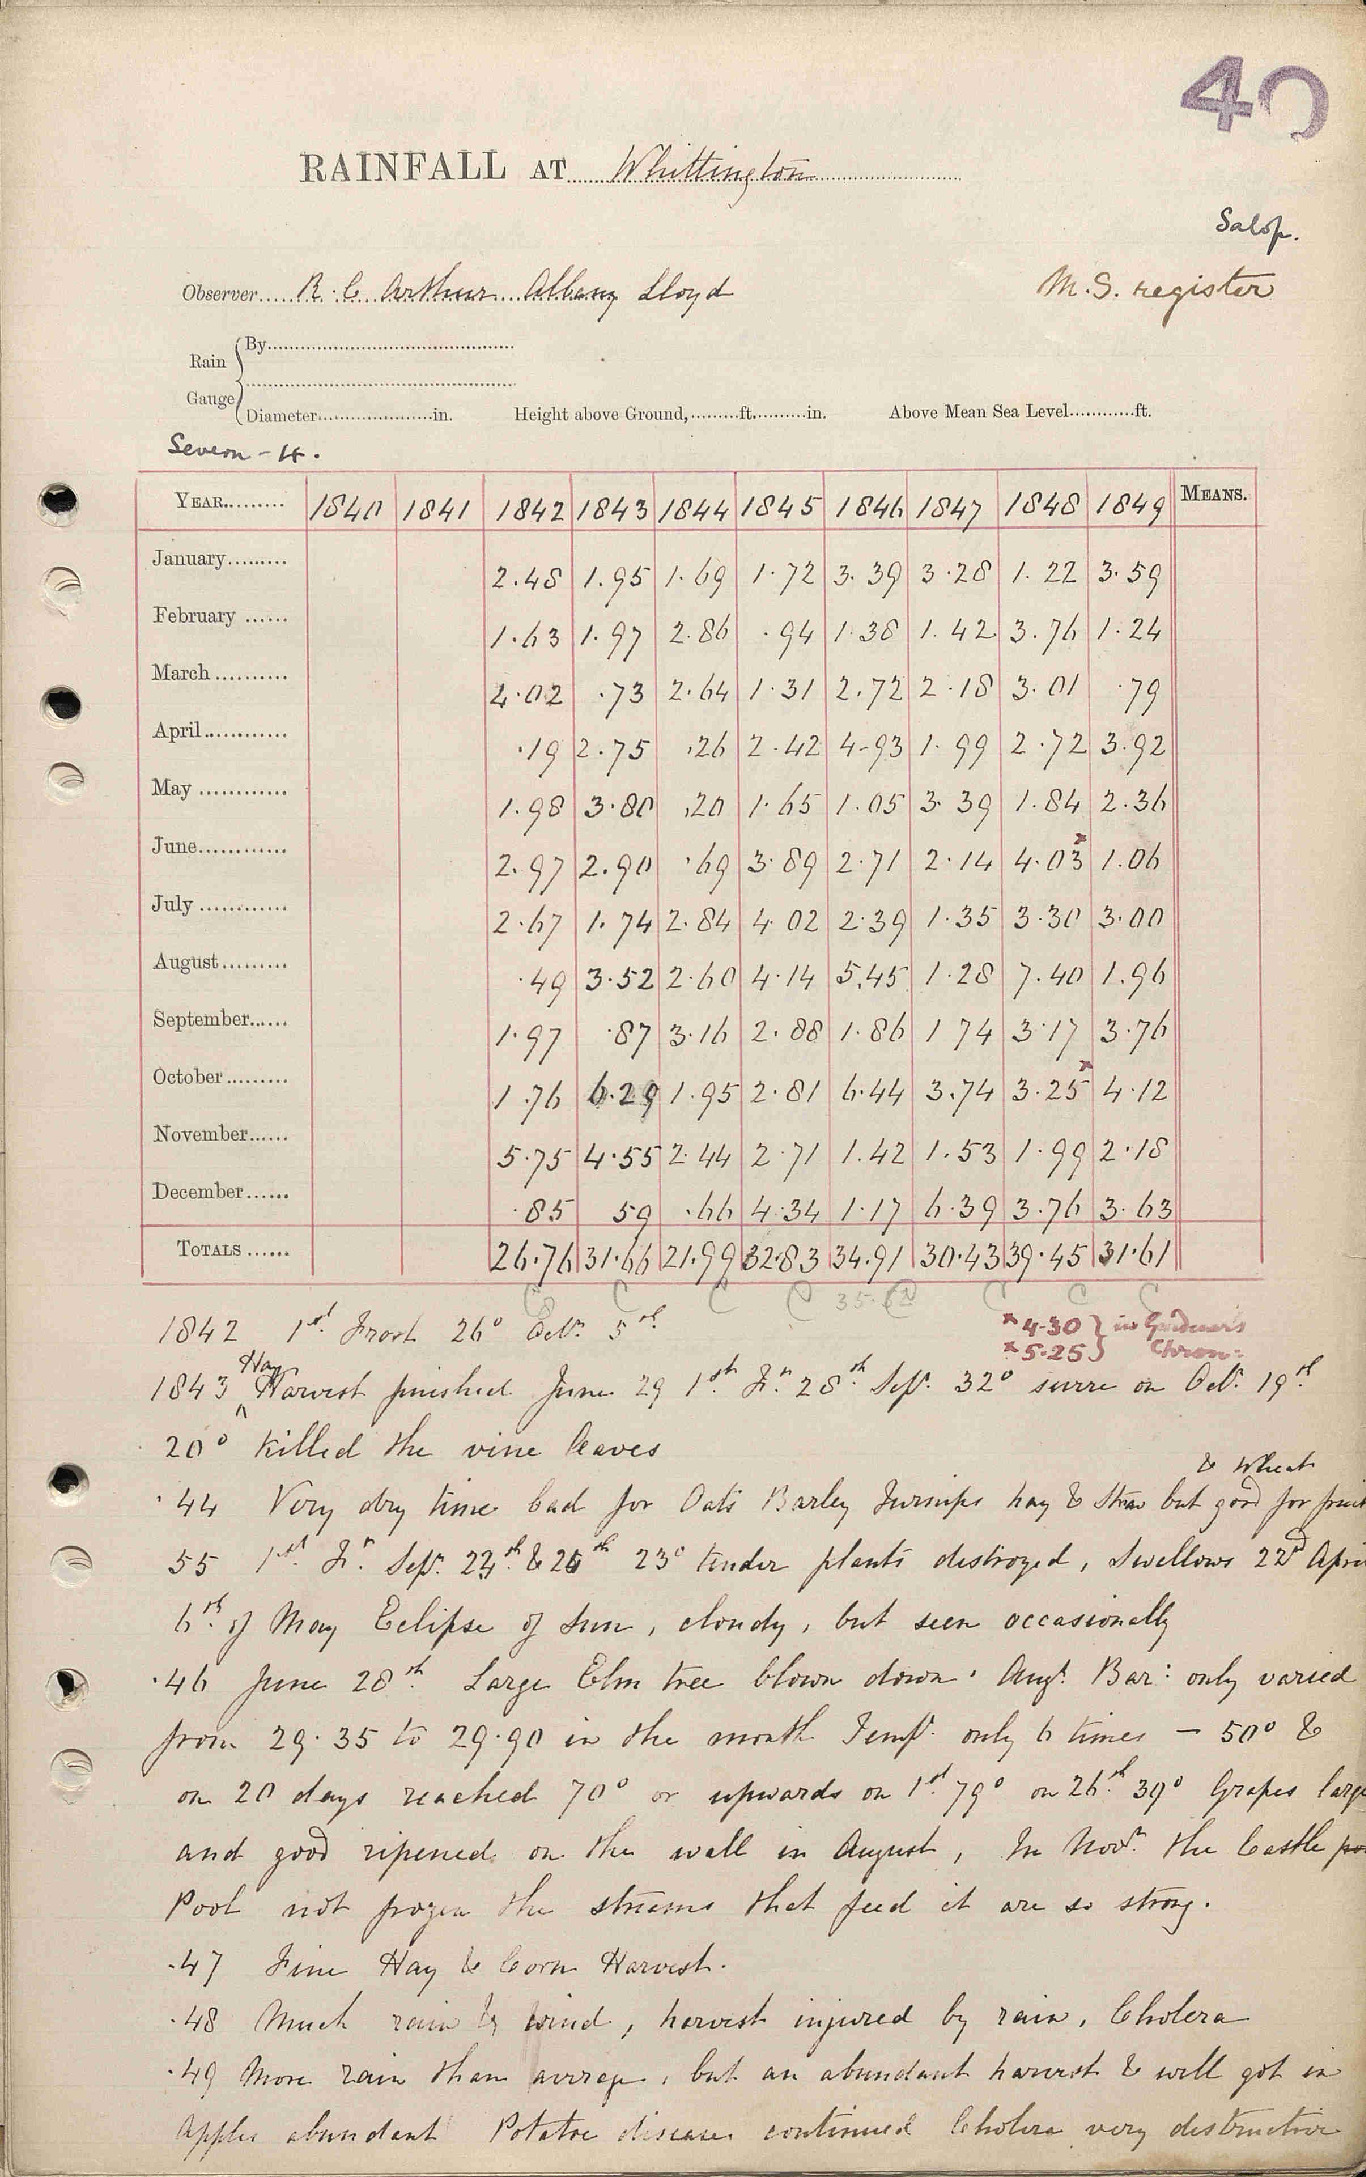 40
RAINFALL AT Whittington
Salop.
Observer R. C. Arthur Albany Lloyd M.S. register
Rain Gauge By
Diameter in. Height above Ground, ft. in. Above Mean Sea Level ft.
Severn - 4.
YEAR 1840 1841 1842 1843 1844 1845 1846 1847 1848 1849 MEANS.
January 2.48 1.95 1.69 1.72 3.39 3.28 1.22 3.59
February 1.63 1.97 2.86 .94 1.38 1.42 3.76 1.24
March 4.02 .73 2.64 1.31 2.72 2.18 3.01 .79
April .19 2.75 .26 2.42 4.93 1.99 2.72 3.92
May 1.98 3.80 .20 1.65 1.05 3.39 1.84 2.36
June 2.97 2.90 .69 3.89 2.71 2.14 4.03x 1.06
July 2.67 1.74 2.84 4.02 2.39 1.35 3.30 3.00
August .49 3.52 2.60 4.14 5.45 1.28 7.40 1.96
September 1.97 .87 3.16 2.88 1.86 1 74 3.17 3.76
October 1.76 6.29 1.95 2.81 6.44 3.74 3.25x 4.12
November 5.75 4.55 2.44 2.71 1.42 1.53 1.99 2.18
December .85 59 .66 4.34 1.17 6.39 3.76 3.63
TOTALS 26.76 31.66 21.99 32.83 34.91 30.43 39.45 31.61
C C C C C C C
1842 1st. Frost 26° Oct. 5th. x 4.30 } in Gardener's
x 5.25 } Chron:
1843 Hay Harvest finished June 29 1st. Fr. 28th. Sep. 32° on Oct. 19th.
20° killed the vine leaves
.44 Very dry time bad for Oats Barley Turnips hay & straw but good for fruit & wheat
55 1st. Fr. Sep. 24th & 23° tender plants destroyed, Swallows 22nd April
6th. of May Eclipse of Sun, cloudy, but seen occasionally
.46 June 28th. Large Elm tree blown down. Augt. Bar: only varied
from 29.35 to 29.90 in the month Temp. only 6 times — 50° &
on 20 days reached 70° or upwards on 1st 79° on 26th. 39° Grapes large
and good ripened on the wall in August, In Novr. the Castle
Pool not frozen the streams that feed it are so strong.
.47 Fine Hay & Corn Harvest.
.48 Much rain & wind, harvest injured by rain, Cholera
.49 More rain than average, but an abundant harvest & well got in
Apples abundant Potatoe disease continued Cholera very destructive